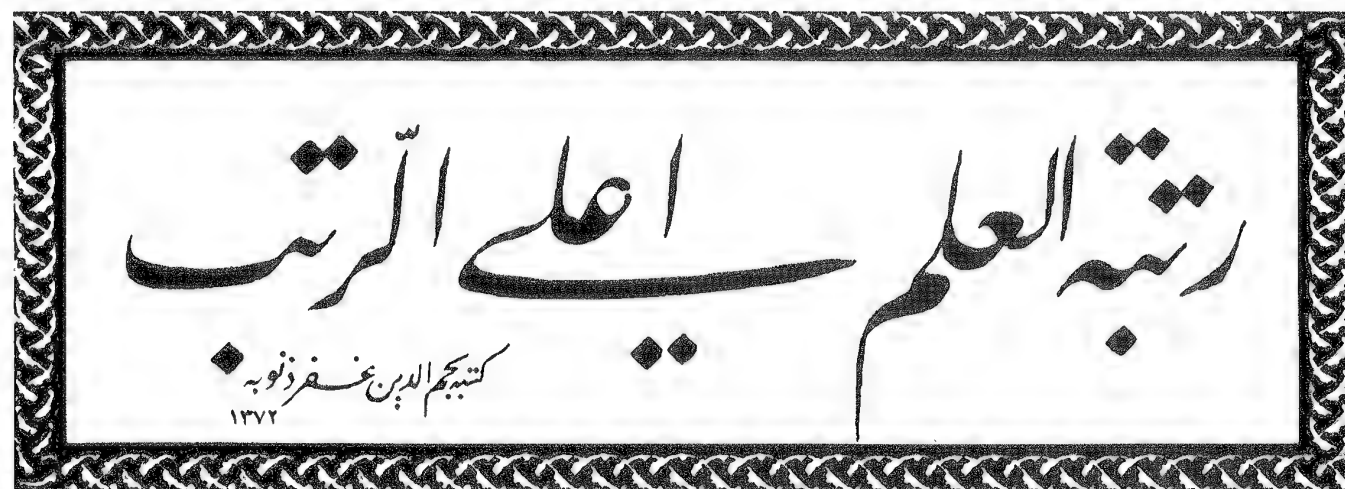 رتبة العلم اعلي الرّتب
كتبه نجم الدين غفر ذنوبه
١٣٧٢